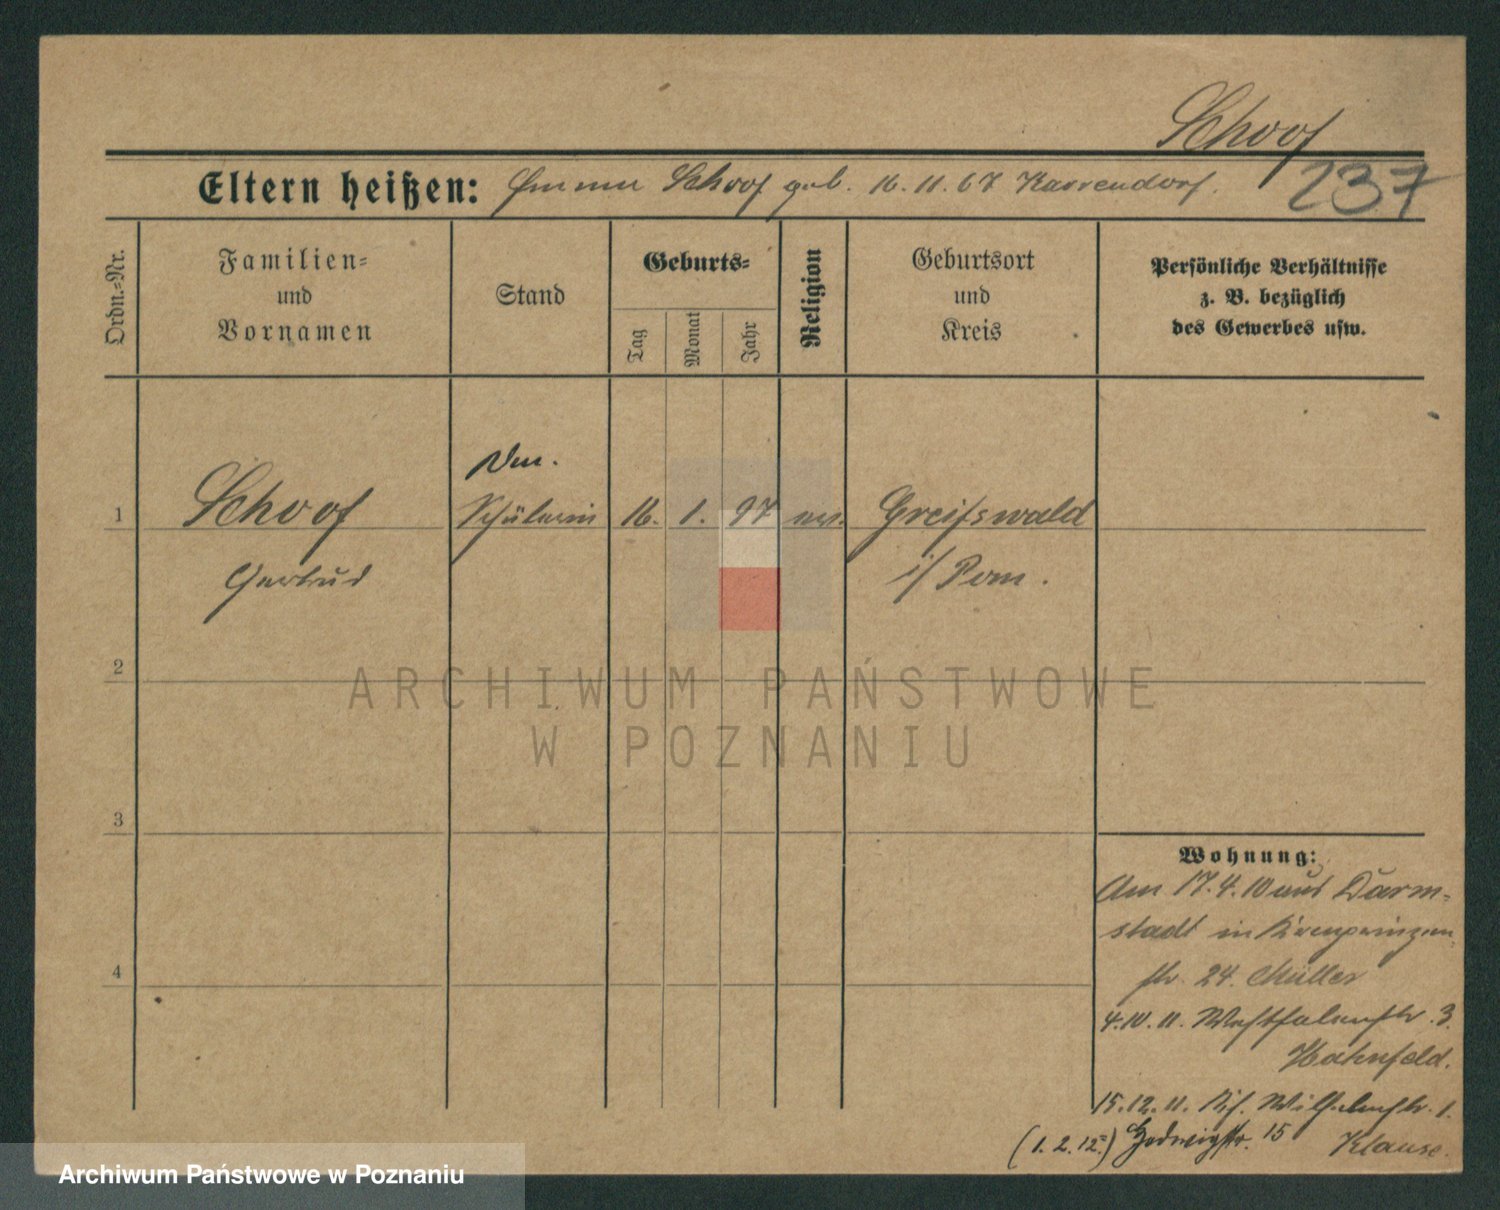 Schoof
Eltern heißen: Emma Schoof geb. 16.11.67 Karrendorf.
237
Ordn.=Nr.
Familien=
und
Vornamen
Stand
Geburts=
Tag
Monat
Jahr
Religion
Geburtsort
und
Kreis
Persönliche Verhältnisse
z. B. bezüglich
des Gewerbes usw.
1
Schoof
Schülerin 16. 1. 97 ev. Greifswald
Gertrud
i/Pom.
2
3
4
Wohnung:
Am 17.4.10 aus Darm-
stadt in Kronprinzen
str. 24. Müller
4.10.11. Westfalenstr. 3.
15.12.11. Wilhelmstr. 1.
Klause.
(1.2.12.) Hedwigstr. 15
ARCHIWUM PAŃSTWOWE
W POZNANIU
Archiwum Państwowe w Poznaniu